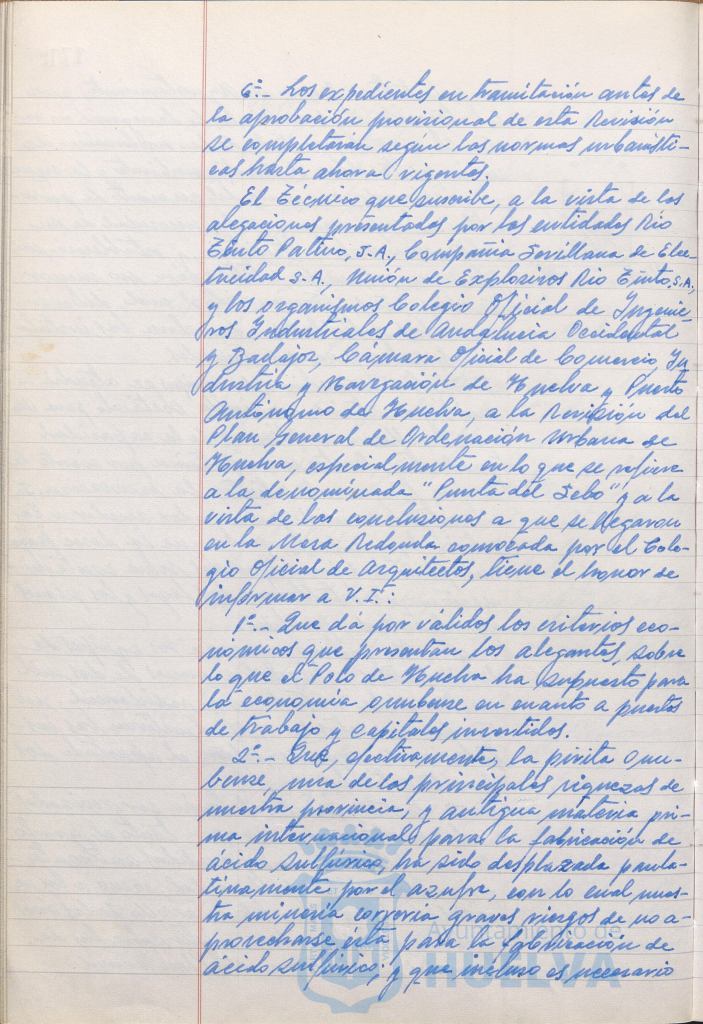 6º.- Los expedientes en tramitación antes de
la aprobación provisional de esta Revisión
se completarán según las normas urbanísti-
cas hasta ahora vigentes.
El Técnico que suscribe, a la vista de las
alegaciones presentadas por las entidades Rio
Tinto Patiño, S.A., Compañia Sevillana de Elec-
tricidad S.A., Unión de Explosivos Rio Tinto, S.A.,
y los organismos Colegio Oficial de Ingenie-
ros Industriales de Andalucia Occidental
y Badajoz, Cámara Oficial de Comercio, In-
dustria y Navegación de Huelva y Puerto
Autónomo de Huelva, a la Revisión del
Plan General de Ordenación Urbana de
Huelva, especialmente en lo que se refiere
a la denominada "Punta del Sebo" y a la
vista de las conclusiones a que se llegaron
en la Mesa Redonda convocada por el Cole-
gio Oficial de Arquitectos, tiene el honor de
informar a V.I.:
1º.- Que dá por válidos los criterios eco-
nómicos que presentan los alegantes, sobre
lo que el Polo de Huelva ha supuesto para
la economía onubense en cuanto a puestos
de trabajo y capitales invertidos.
2º.- Que, efectivamente, la pirita onu-
bense, una de las principales riquezas de
nuestra provincia, y antigua materia pri-
ma internacional para la fabricación de
ácido sulfúrico, ha sido desplazada paula-
tinamente por el azufre, con lo cual nues-
tra minería correría graves riesgos de no a-
provecharse ésta para la fabricación de
ácido sulfúrico; y que incluso es necesario
Ayuntamiento de
HUELVA